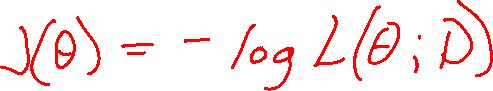 J(θ) = - log L(θ; D)